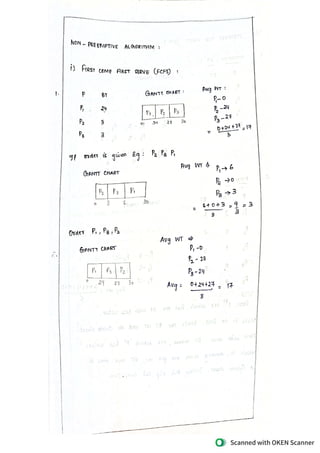 NON-PREEMPTIVE ALGORITHM:
i) FIRST COME FIRST SERVE (FCFS):
1. P BT GANTT CHART: Avg WT:
P1 24 P1-0
P2 3 P2-24
P3 3 P3-27
P1 P2 P3
0 24 27 30
= 0+24+27 / 3 = 17
order is given Eg: P2 P3 P1
GANTT CHART Avg WT
P1→6
P2→0
P3→3
P2 P3 P1
0 3 6 30
= 6+0+3 / 3 = 9 / 3 = 3
ORDER P1, P3, P2
GANTT CHART Avg WT ⇒
P1-0
P2-27
P3-24
P1 P3 P2
0 24 27 30
Avg: 0+24+27 / 3 = 17
Scanned with OKEN Scanner